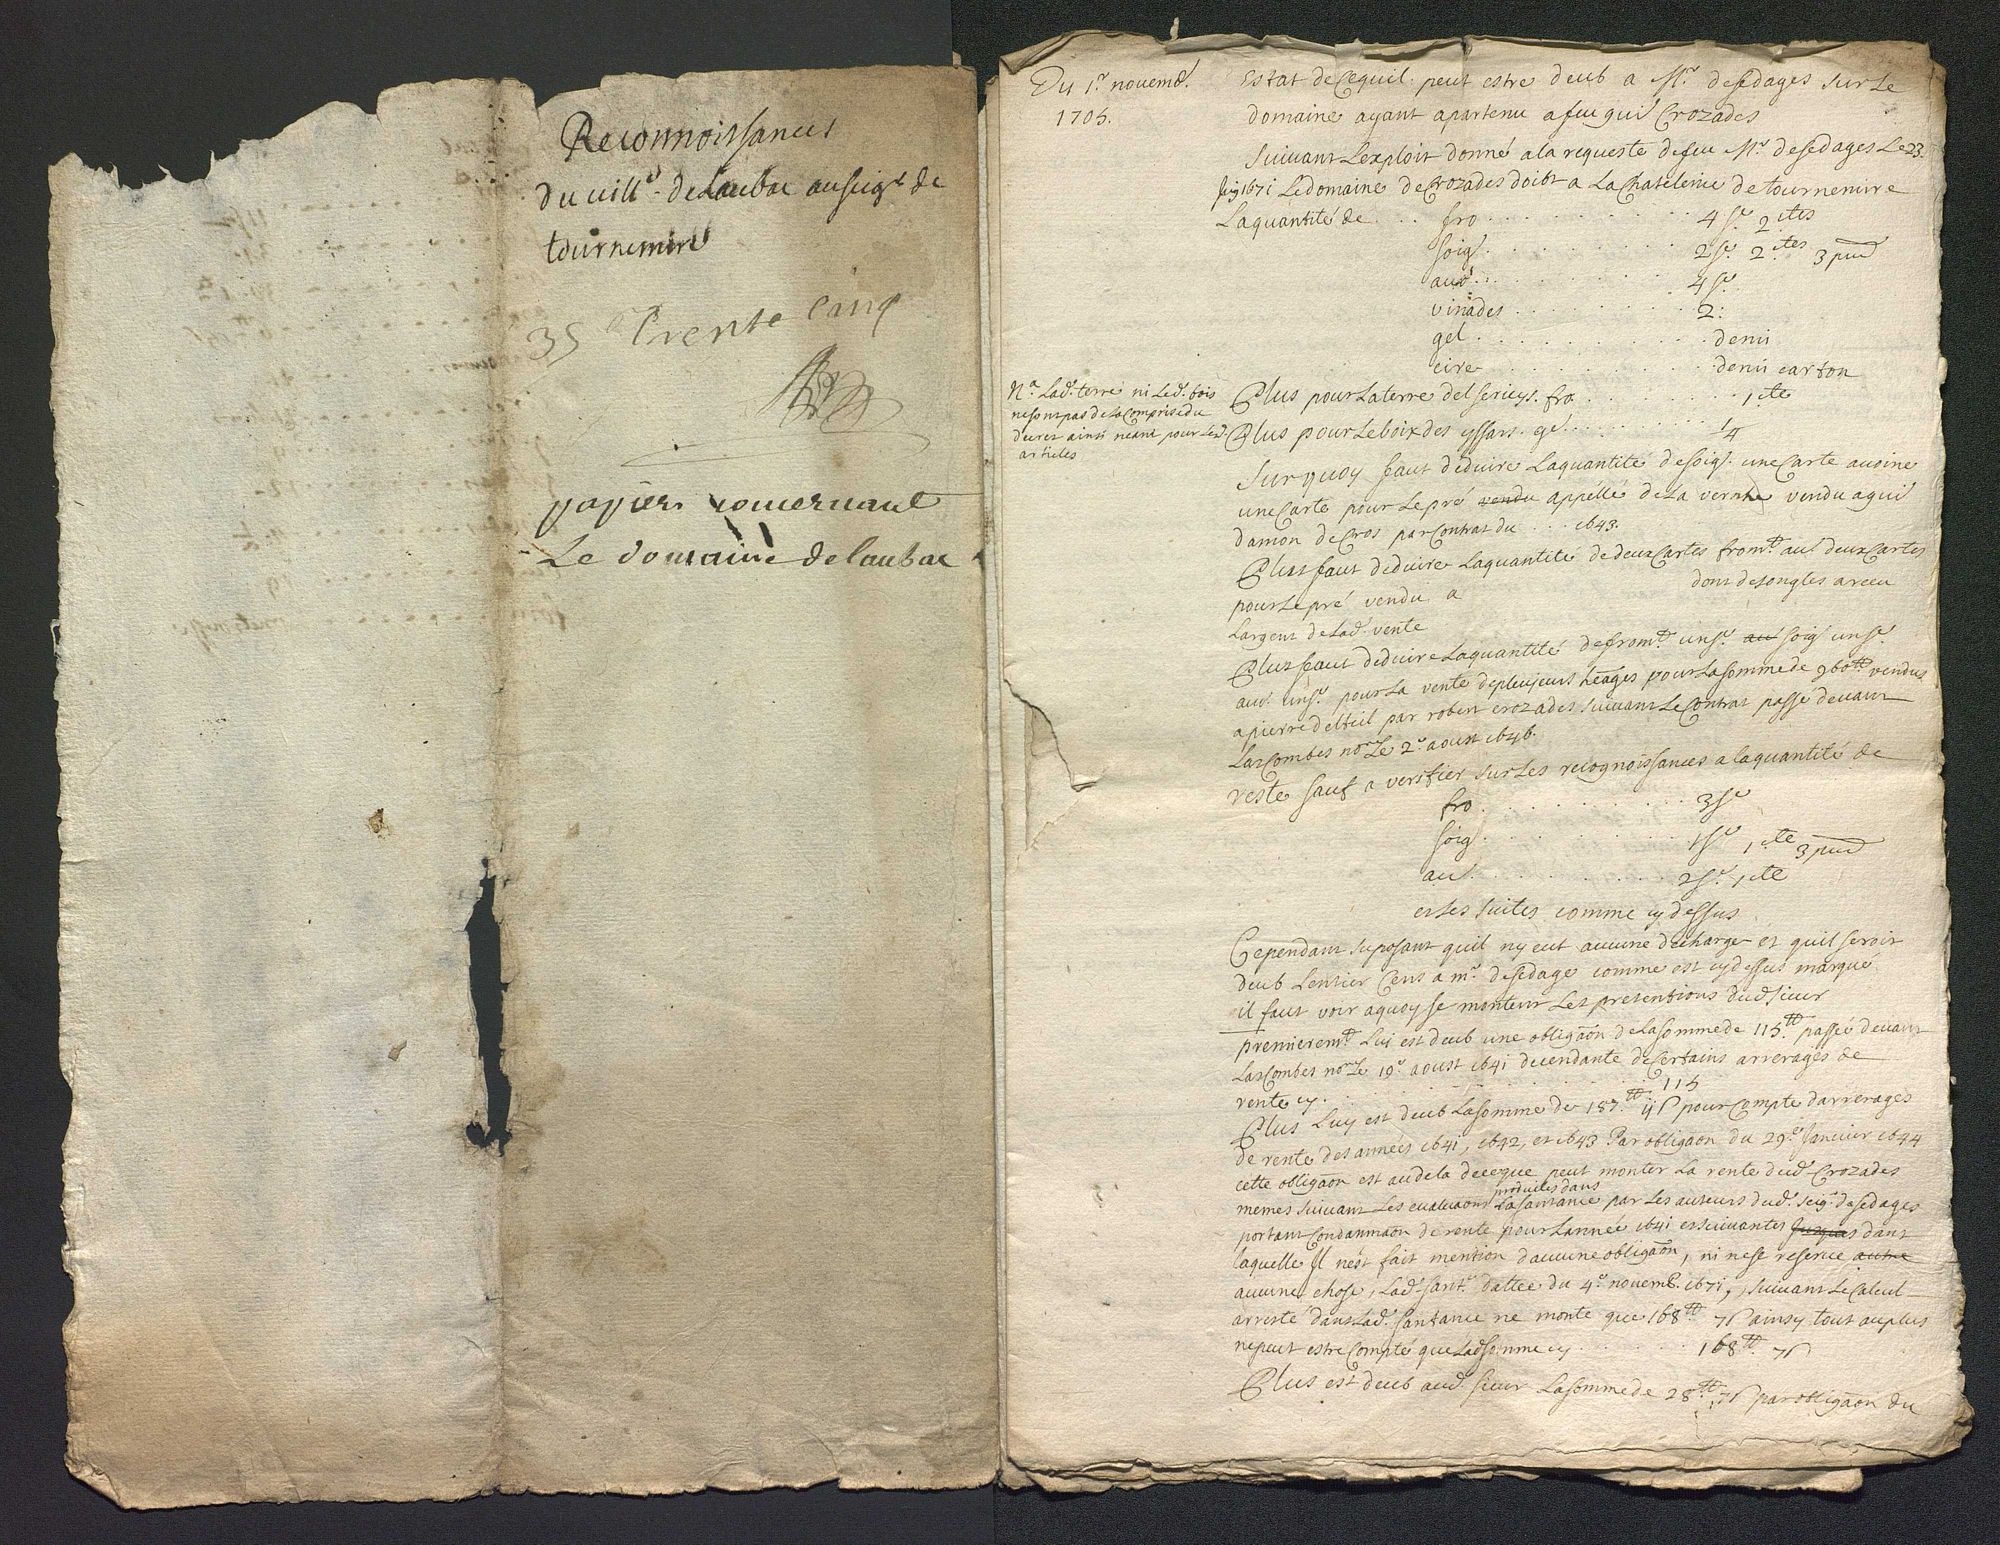 Reconnoissances
du vill.e de Laubac au seig.r de
tournemire
35 trente cinq
papiers concernant
Le domaine de laubac
Du 1.r novemb.
1705.
Estat de Cequil peut estre deub a M.r desedages sur Le
domaine ayant apartenu a feu gui Crozades
Suivant Lexploit donné a la requeste de feu M.r desedages Le 23.
1671 Le domaine de Crozades doibt a La Chatelenie de tournemire
La quantité de . . . fro . . . 4 se. 2 ctes
soig. . . . 2 se. 2 ctes 3 pud
avo. . . . 4 se.
vinades . . . 2.
gel . . . demi
cire . . . demi carton
N.a Lad. terre ni Led. bois
ne sont pas de la Comprise du
decret ainsi neant pour Lesd.
articles
Plus pour La terre del serieys. fro . . . 1 cte
Plus pour Le boix des yssars. ge. . . . 1/4
Sur quoy faut déduire La quantité de soig. une Carte avoine
une Carte pour Le pré vendu appéllé de La vernhe vendu a gui
damon de Cros par Contrat du . . . 1643.
Plus faut déduire La quantité de deux Cartes from.t av. deux Cartes
pour Le pré vendu a dont desongles a receu
Largent de Lad. vente
Plus faut déduire La quantité de from.t un se. av. soig. un se.
avo. un se. pour La vente de plusieurs héages pour La somme de 960 tt vendus
a pierre delteil par robert crozades suivant Le Contrat passé devant
LasCombes no.re Le 2.e aoust 1646.
reste sauf a verifier sur Les recognoissances a la quantité de
fro . . . 3 se
soig . . . 1 se 1 cte 3 pud
av. . . . 2 se. 1 cte
et Les suites comme cy dessus
Cependant suposant quil ny eut aucune décharge et quil seroit
deub Lentier Cens a m.r desedage comme est cy dessus marqué
il faut voir a quoy se montent Les pretentions dud. sieur
premierem.t Lui est deub une obligaōn de La somme de 115 tt passée devant
LasCombes no.re Le 19.e aoust 1641 decendante de Certains arrerages de
rente cy . . . 115
Plus Luy est deub La somme de 187 tt ii s pour Compte darrerages
de rente des années 1641, 1642, et 1643 Par obligaōn du 29.e Janvier 1644
cette obligaōn est audela de ceque peut monter La rente dud. Crozades
memes suivant Les evaluaons produites dans La santance par Les auteurs dud. seig.r desedages
portant Condamnaōn de rente pour Lannée 1641 et suivantes jusques dans
laquelle Il n'est fait mention daucune obligaōn, ni ne se reserve autre
aucune chose, Lad. sant.e dattée du 4.e novemb. 1671, suivant Le Calcul
arresté dans Lad. santance ne monte que 168 tt 7 s ainsy tout au plus
ne peut estre Compté que Lad. somme cy . . . 168 tt 7 s
Plus est deub aud. sieur La somme de 28 tt 7 s par obligaōn du